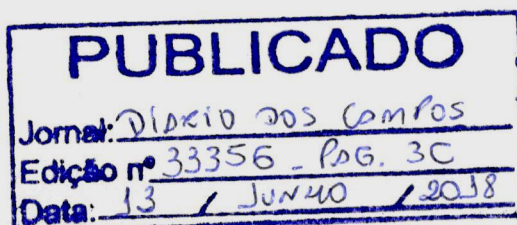 PUBLICADO
Jornal: DIÁRIO DOS CAMPOS
Edição nº 33356 - PÁG. 3C
Data: 13 / JUNHO / 2018